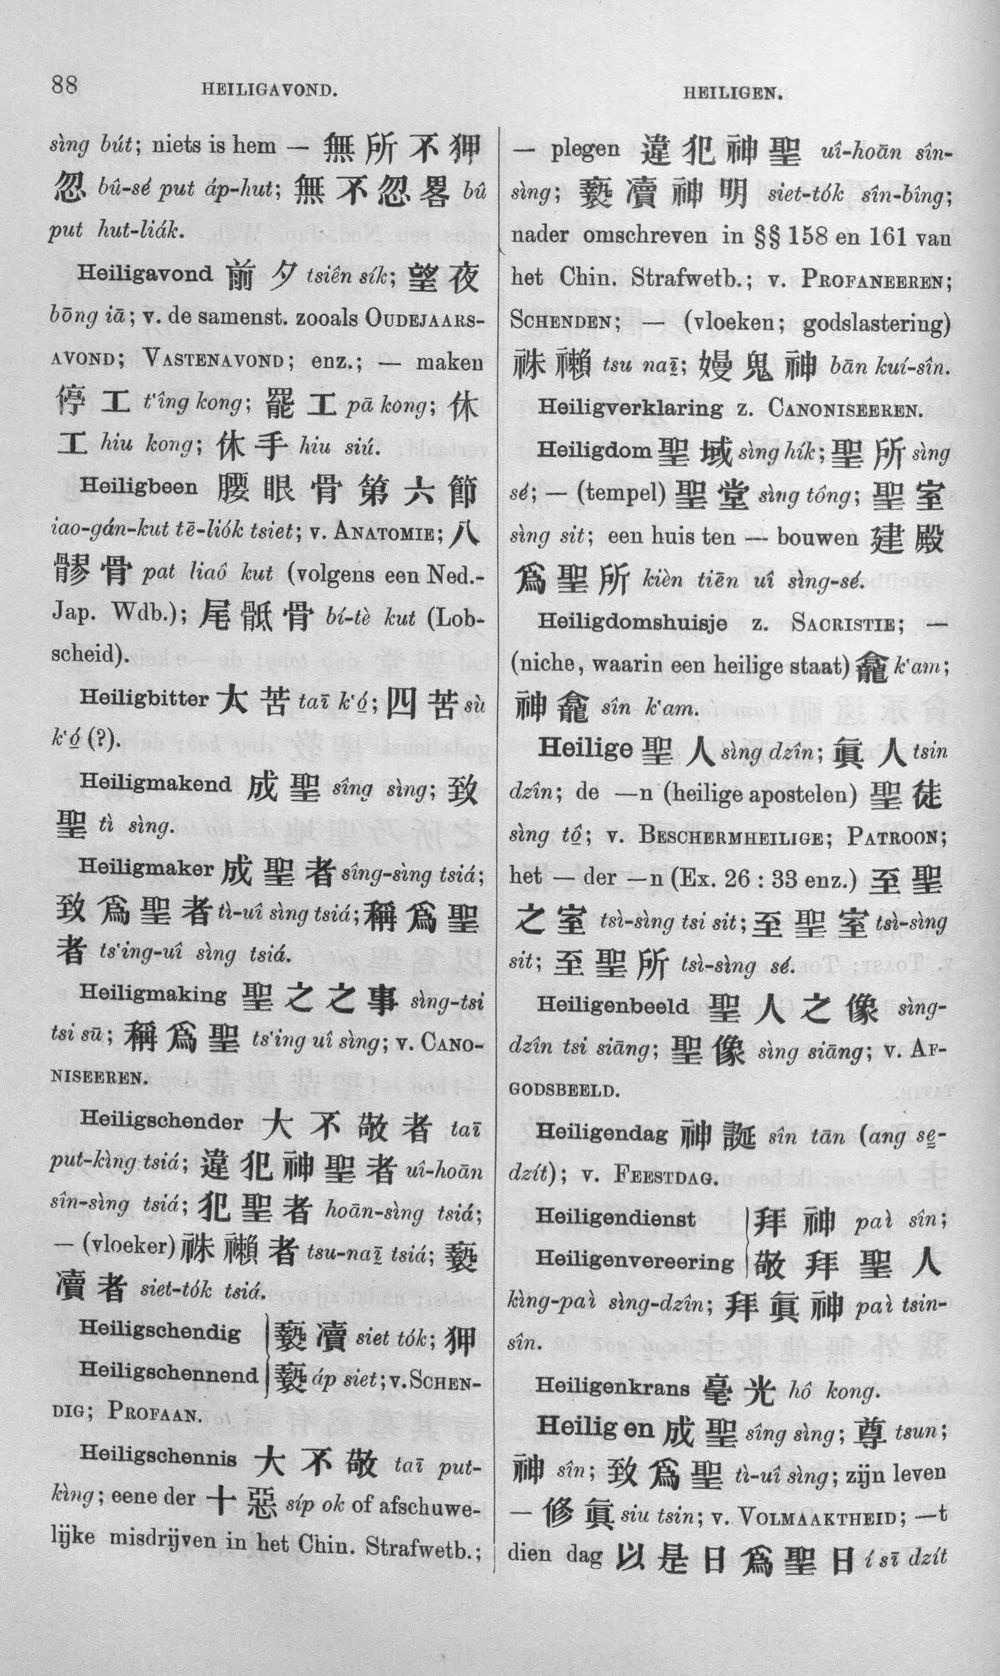 88
HEILIGAVOND.
HEILIGEN.
sìng bút; niets is hem — 無所不狎
忽 bû-sé put áp-hut; 無不忽畧 bû
put hut-liák.
Heiligavond 前夕 tsiên sík; 望夜
bōng iā; v. de samenst. zooals OUDEJAARS-
AVOND; VASTENAVOND; enz.; — maken
停工 t‘îng kong; 罷工 pā kong; 休
工 hiu kong; 休手 hiu siú.
Heiligbeen 腰眼骨第六節
iao-gán-kut tē-liók tsiet; v. ANATOMIE; 八
髎骨 pat liaô kut (volgens een Ned.-
Jap. Wdb.); 尾骶骨 bí-tè kut (Lob-
scheid).
Heiligbitter 太苦 taī k‘ó̤; 四苦 sù
k‘ó̤ (?).
Heiligmakend 成聖 sîng sìng; 致
聖 tì sìng.
Heiligmaker 成聖者 sîng-sìng tsiá;
致爲聖者 tì-uî sìng tsiá; 稱爲聖
者 ts‘ing-uî sìng tsiá.
Heiligmaking 聖之之事 sìng-tsi
tsi sū; 稱爲聖 ts‘ing uî sìng; v. CANO-
NISEEREN.
Heiligschender 大不敬者 taī
put-kìng tsiá; 違犯神聖者 uî-hoān
sîn-sìng tsiá; 犯聖者 hoān-sìng tsiá;
— (vloeker) 祩䄛者 tsu-naī̤ tsiá; 褻
瀆者 siet-tók tsiá.
Heiligschendig 褻瀆 siet tók; 狎
Heiligschennend 褻 áp siet; v. SCHEN-
DIG; PROFAAN.
Heiligschennis 大不敬 taī put-
kìng; eene der 十惡 síp ok of afschuwe-
lijke misdrijven in het Chin. Strafwetb.;
— plegen 違犯神聖 uî-hoān sîn-
sìng; 褻瀆神明 siet-tók sîn-bîng;
nader omschreven in §§ 158 en 161 van
het Chin. Strafwetb.; v. PROFANEEREN;
SCHENDEN; — (vloeken; godslastering)
祩䄛 tsu naī̤; 嫚鬼神 bān kuí-sîn.
Heiligverklaring z. CANONISEEREN.
Heiligdom 聖域 sìng hík; 聖所 sìng
sé; — (tempel) 聖堂 sìng tông; 聖室
sìng sit; een huis ten — bouwen 建殿
爲聖所 kièn tiēn uî sìng-sé.
Heiligdomshuisje z. SACRISTIE; —
(niche, waarin een heilige staat) 龕 k‘am;
神龕 sîn k‘am.
Heilige 聖人 sìng dzîn; 眞人 tsin
dzîn; de —n (heilige apostelen) 聖徒
sìng tô̤; v. BESCHERMHEILIGE; PATROON;
het — der —n (Ex. 26 : 33 enz.) 至聖
之室 tsì-sìng tsi sit; 至聖室 tsì-sìng
sit; 至聖所 tsì-sìng sé.
Heiligenbeeld 聖人之像 sìng-
dzîn tsi siāng; 聖像 sìng siāng; v. AF-
GODSBEELD.
Heiligendag 神誕 sîn tān (ang se̤-
dzít); v. FEESTDAG.
Heiligendienst 拜神 paì sîn;
Heiligenvereering 敬拜聖人
kìng-paì sìng-dzîn; 拜眞神 paì tsin-
sîn.
Heiligenkrans 毫光 hô kong.
Heiligen 成聖 sîng sìng; 尊 tsun;
神 sîn; 致爲聖 tì-uî sìng; zijn leven
— 修眞 siu tsin; v. VOLMAAKTHEID; —t
dien dag 以是日爲聖日 í sī dzít